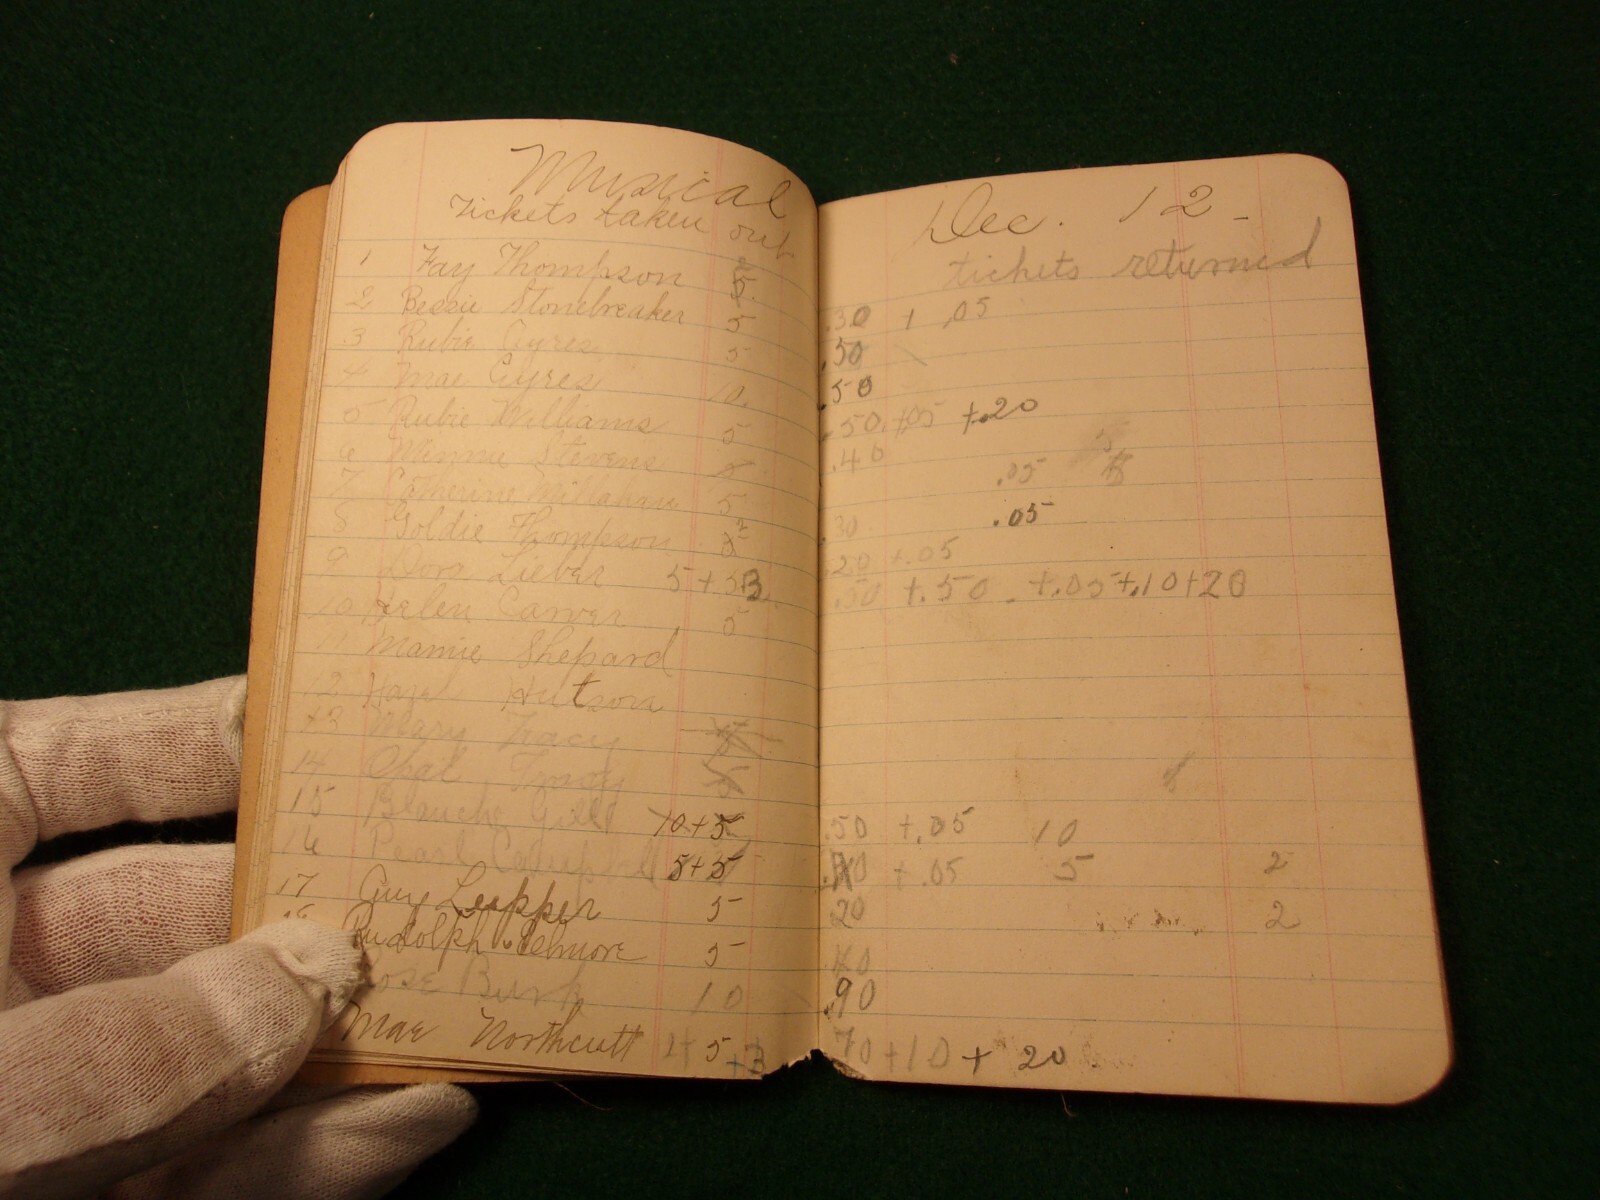 Musical
Tickets taken out
1 Fay Thompson 5
2 Bessie Stonebreaker 5
3 Rubie Ayres 5
4 Mae Ayres 10
5 Rubie Williams 5
6 Minnie Stevens 5
7 Catherine Millahan 5
8 Goldie Thompson 2
9 Dora Lieber 5+5B
10 Helen Carver 5
11 Mamie Shepard
12 Hazel Hutson
13 Mary Tracy
14 Opal Tracy
15 Blanche Gill 10+5
16 Pearl Campbell 5+5
17 Guy Lepper 5
18 Rudolph Belmore 5
Rose Burk 10
Mae Northcutt 2+5+3
Dec. 12-
tickets returned
.30 + .05
.50
.50
.50 +.05 +.20
.40
.05
.30 .05
.20 +.05
.50 +.50 +.05+.10+20
.50 +.05 10
+.05 5 2
20 2
40
.90
70+10+20